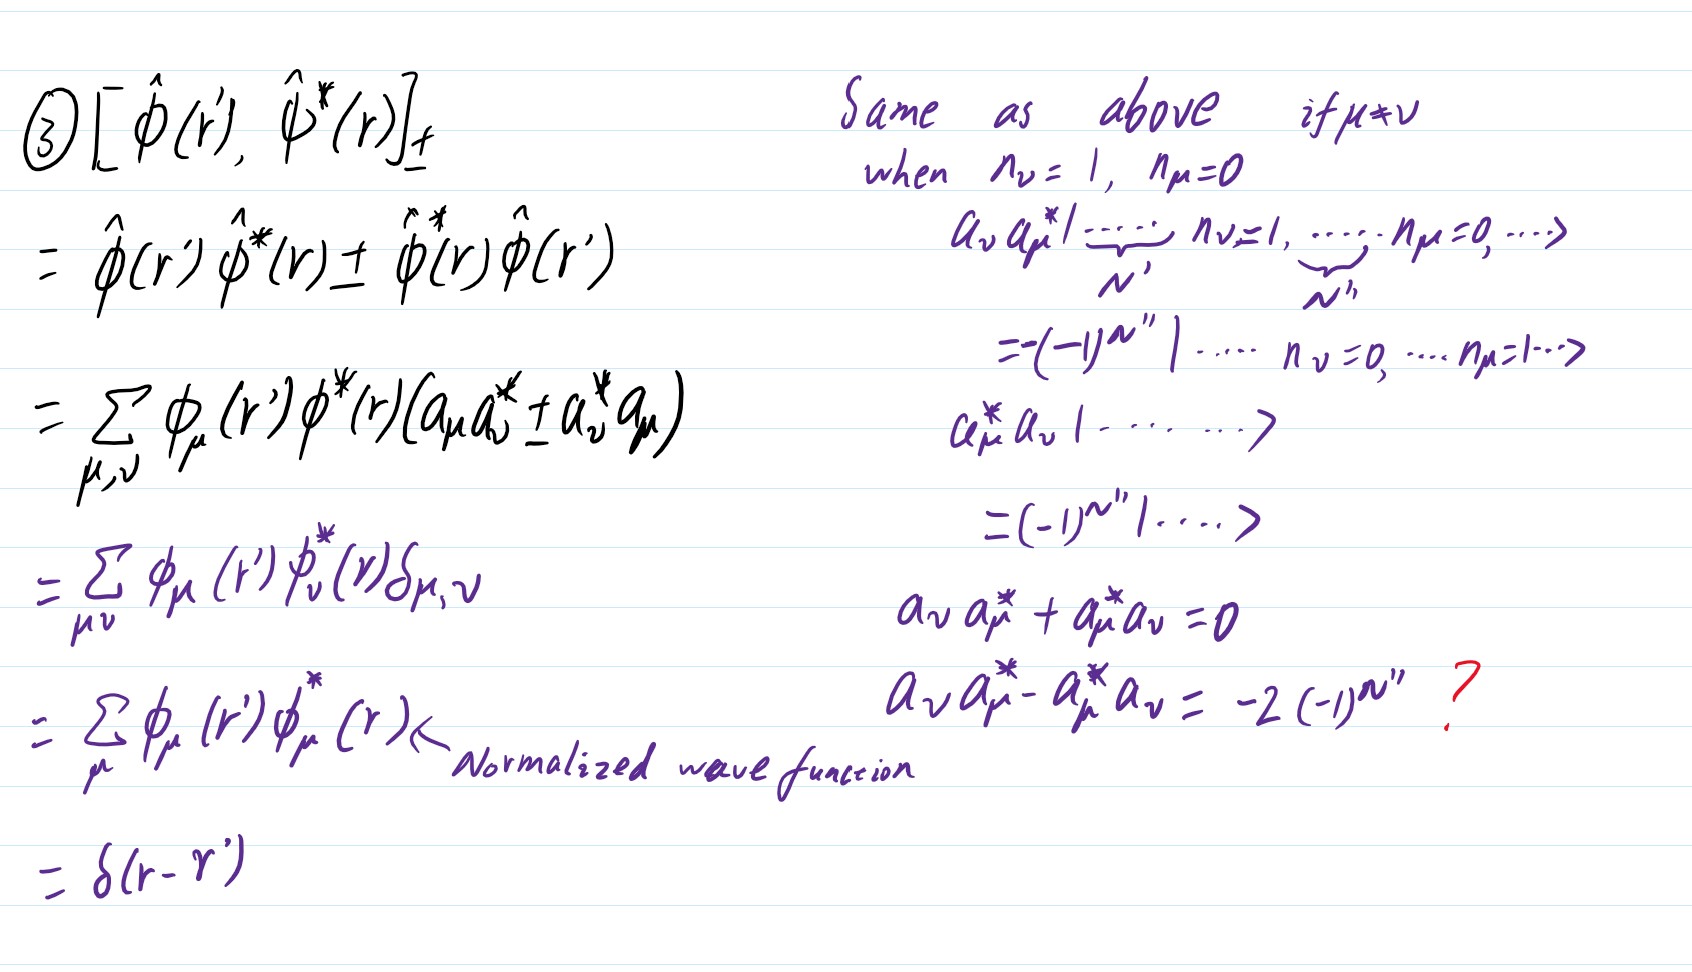 ③ [ϕ̂(r'), ψ̂*(r)]±
= ϕ̂(r') ϕ̂*(r) ± ϕ̂*(r) ϕ̂(r')
= Σ_{μ,ν} ϕ_μ(r') ϕ*(r)(a_μ a_ν* ± a_ν* a_μ)
= Σ_{μν} ϕ_μ(r') ϕ_ν*(r) δ_{μ,ν}
= Σ_μ ϕ_μ(r') ϕ_μ*(r) ← Normalized wave function
= δ(r - r')
Same as above if μ≠ν
when n_ν = 1, n_μ = 0
a_ν a_μ* |..... n_ν=1, ..... n_μ=0, ....>
N' N''
= -(-1)^{N''} |..... n_ν=0, .... n_μ=1...>
a_μ* a_ν |.... ....>
= (-1)^{N''} |....>
a_ν a_μ* + a_μ* a_ν = 0
a_ν a_μ* - a_μ* a_ν = -2 (-1)^{N''} ?